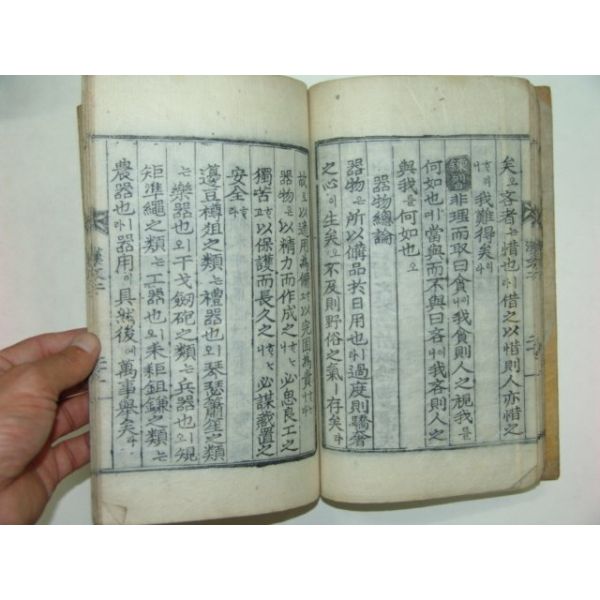 矣오客者는惜也라借之以惜則人亦惜之
我難得矣리라
非理而取曰貪이니我貪則人之視我를
何如也에當與而不與曰吝이니我吝則人之
與我를何如也오
器物總論
器物은所以備品하야日用也라過度則驕奢
之心이生矣오不及則野俗之氣存矣라
故로以適用爲備하며以完固爲貴
器物은以精力而作成之니必思良工之
獨苦하고以保護而長久之니必謀藏置之
安全라
籩豆樽俎之類는禮器也오琴瑟簫笙之類
는樂器也오干戈劒砲之類는兵器也오規
矩準繩之類는工器也오耒耟鉏鎌之類는
農器也니器用이具然後에萬事擧矣라
漢文二